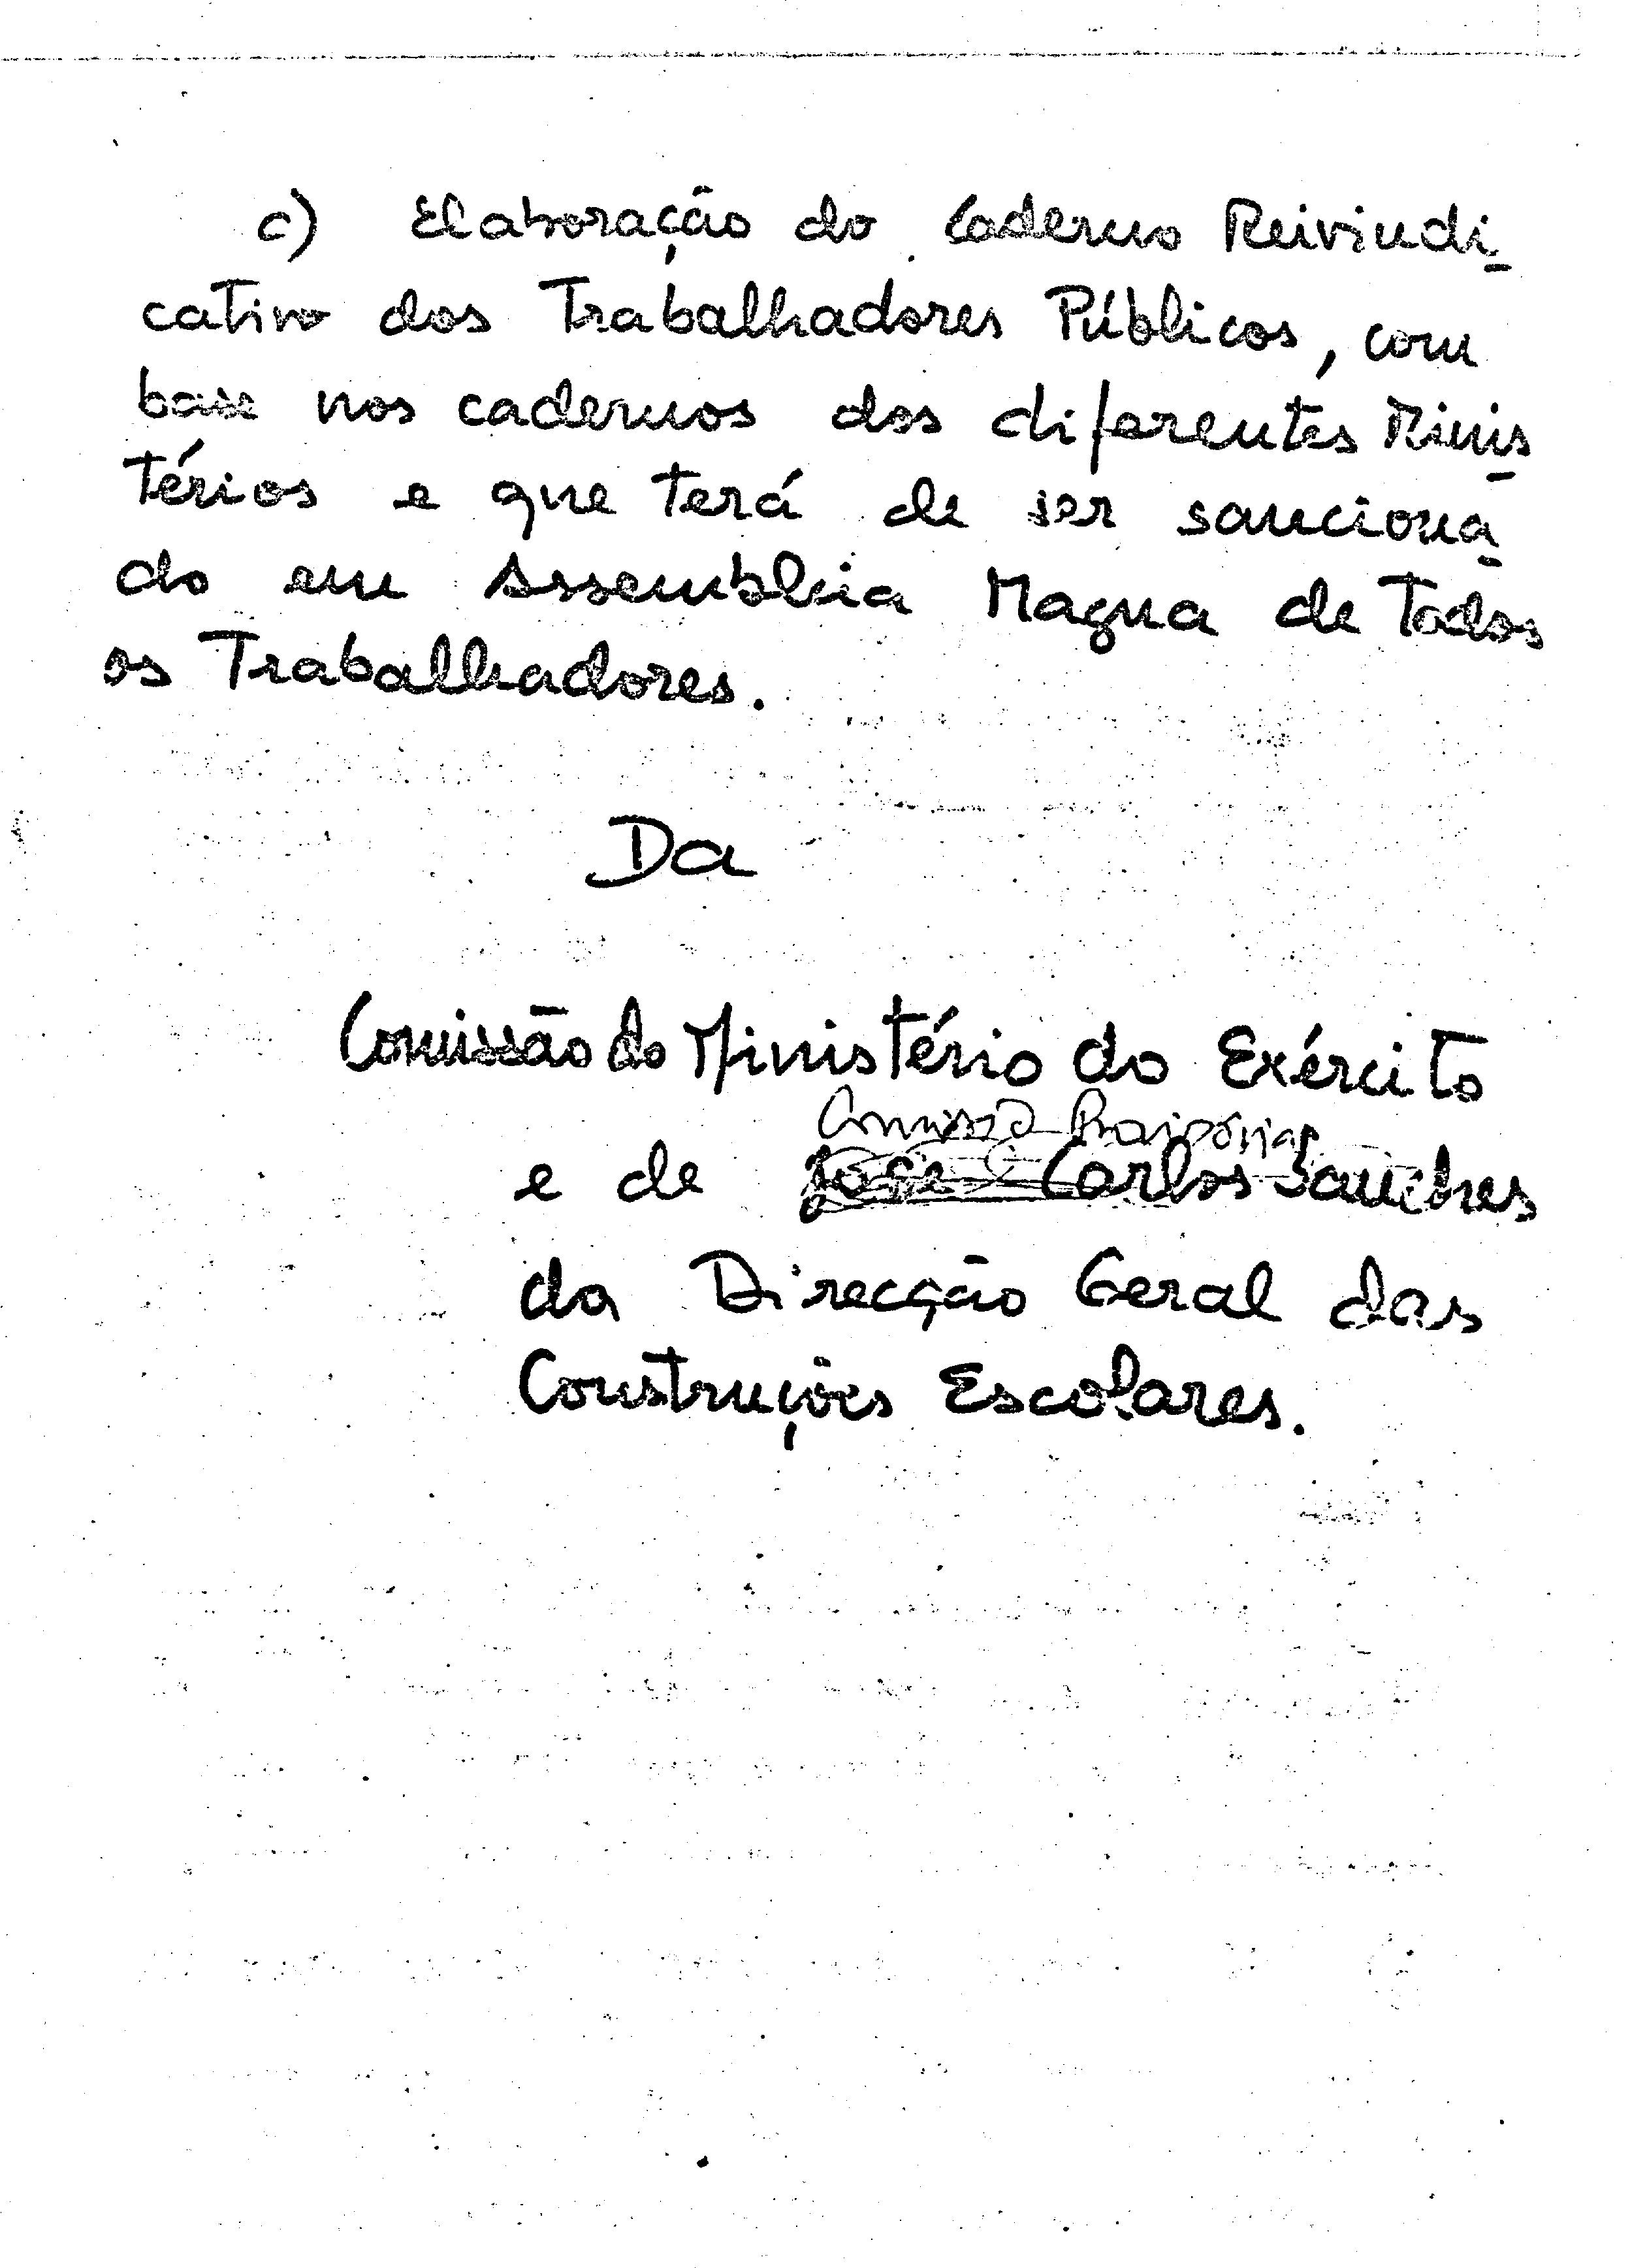 c) Elaboração do Caderno Reivindi-
cativo dos Trabalhadores Públicos, com
base nos cadernos dos diferentes Minis-
térios e que terá de ser sanciona-
do em Assembleia Magna de Todos
os Trabalhadores.
Da
Comissão do Ministério do Exército
Comissão
e de José Carlos Sanches
da Direcção Geral das
Construções Escolares.